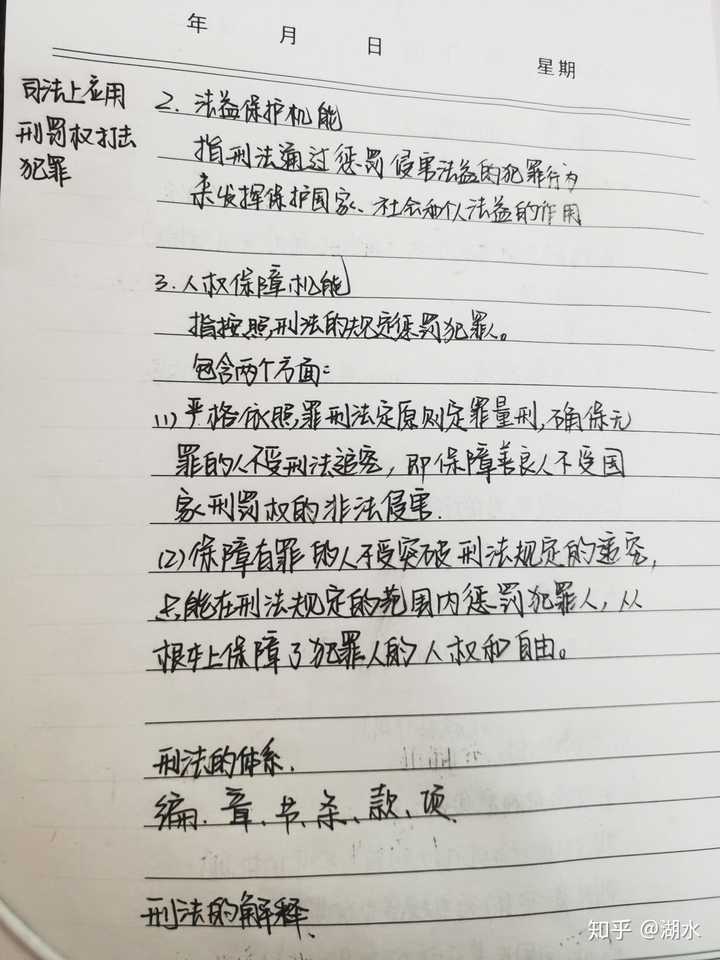 年 月 日 星期
司法上应用
刑罚权打击
犯罪
2. 法益保护机能
指刑法通过惩罚侵害法益的犯罪行为
来发挥保护国家、社会和个人法益的作用
3. 人权保障机能
指按照刑法的规定惩罚犯罪人。
包含两个方面:
(1) 严格依照罪刑法定原则定罪量刑,确保无
罪的人不受刑法追究,即保障善良人不受国
家刑罚权的非法侵害.
(2) 保障有罪的人不受突破刑法规定的追究,
只能在刑法规定的范围内惩罚犯罪人,从
根本上保障了犯罪人的人权和自由。
刑法的体系.
编、章、节、条、款、项
刑法的解释
知乎 @湖水